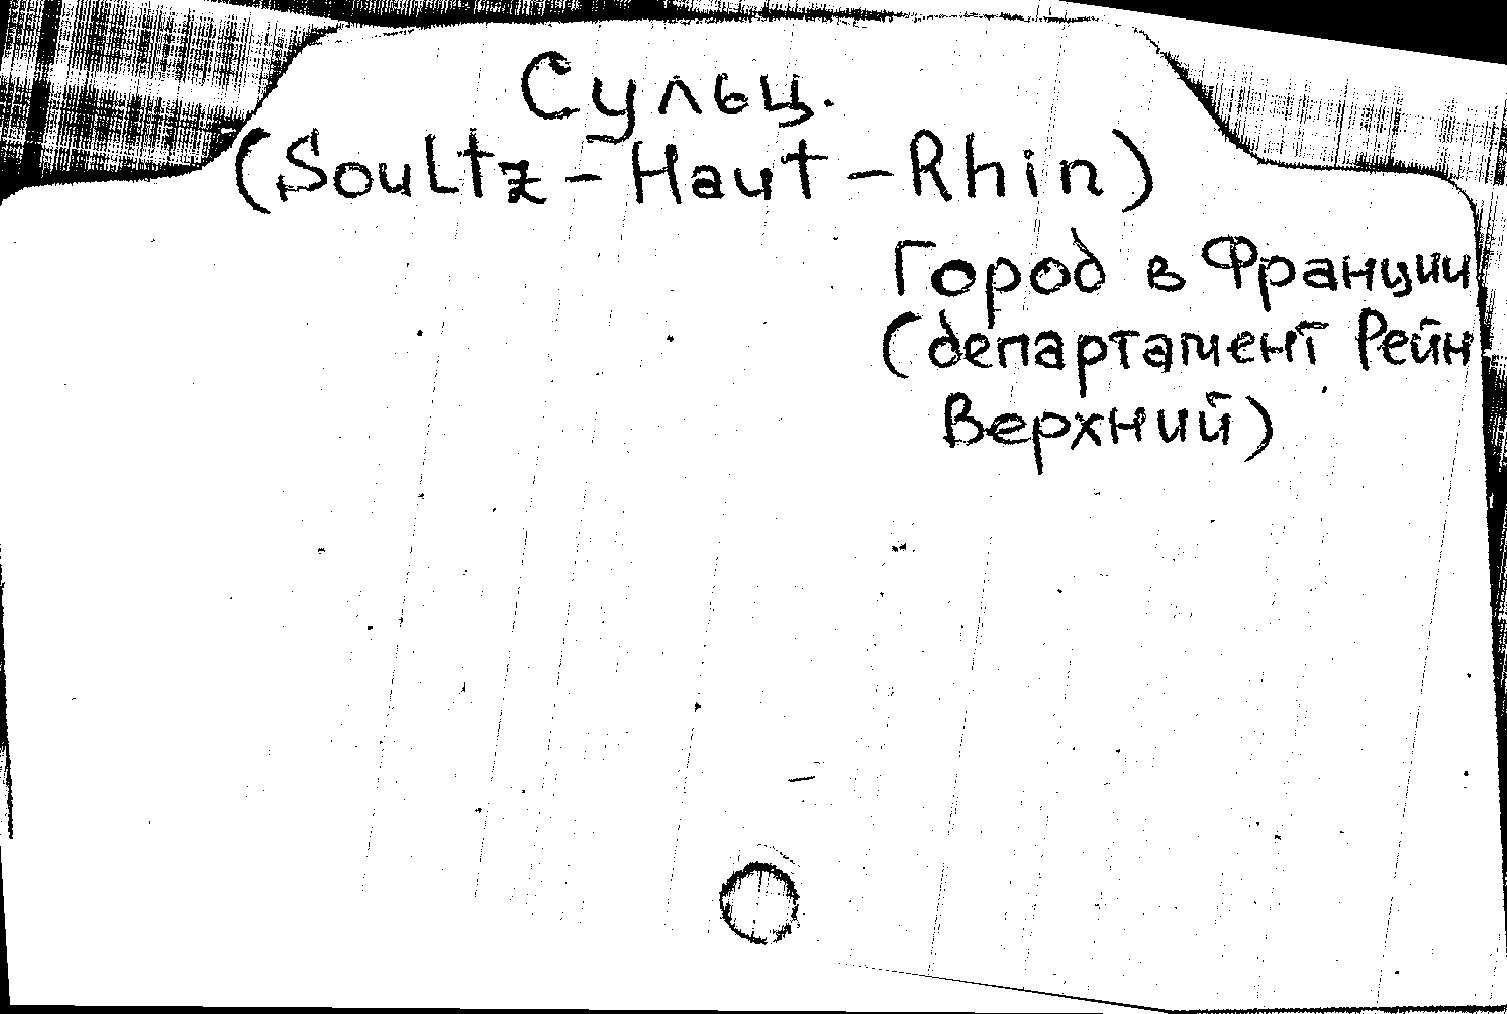 Сульц.
(Soultz-Haut-Rhin)
Город в Франции
(департамент Рейн
Верхний)